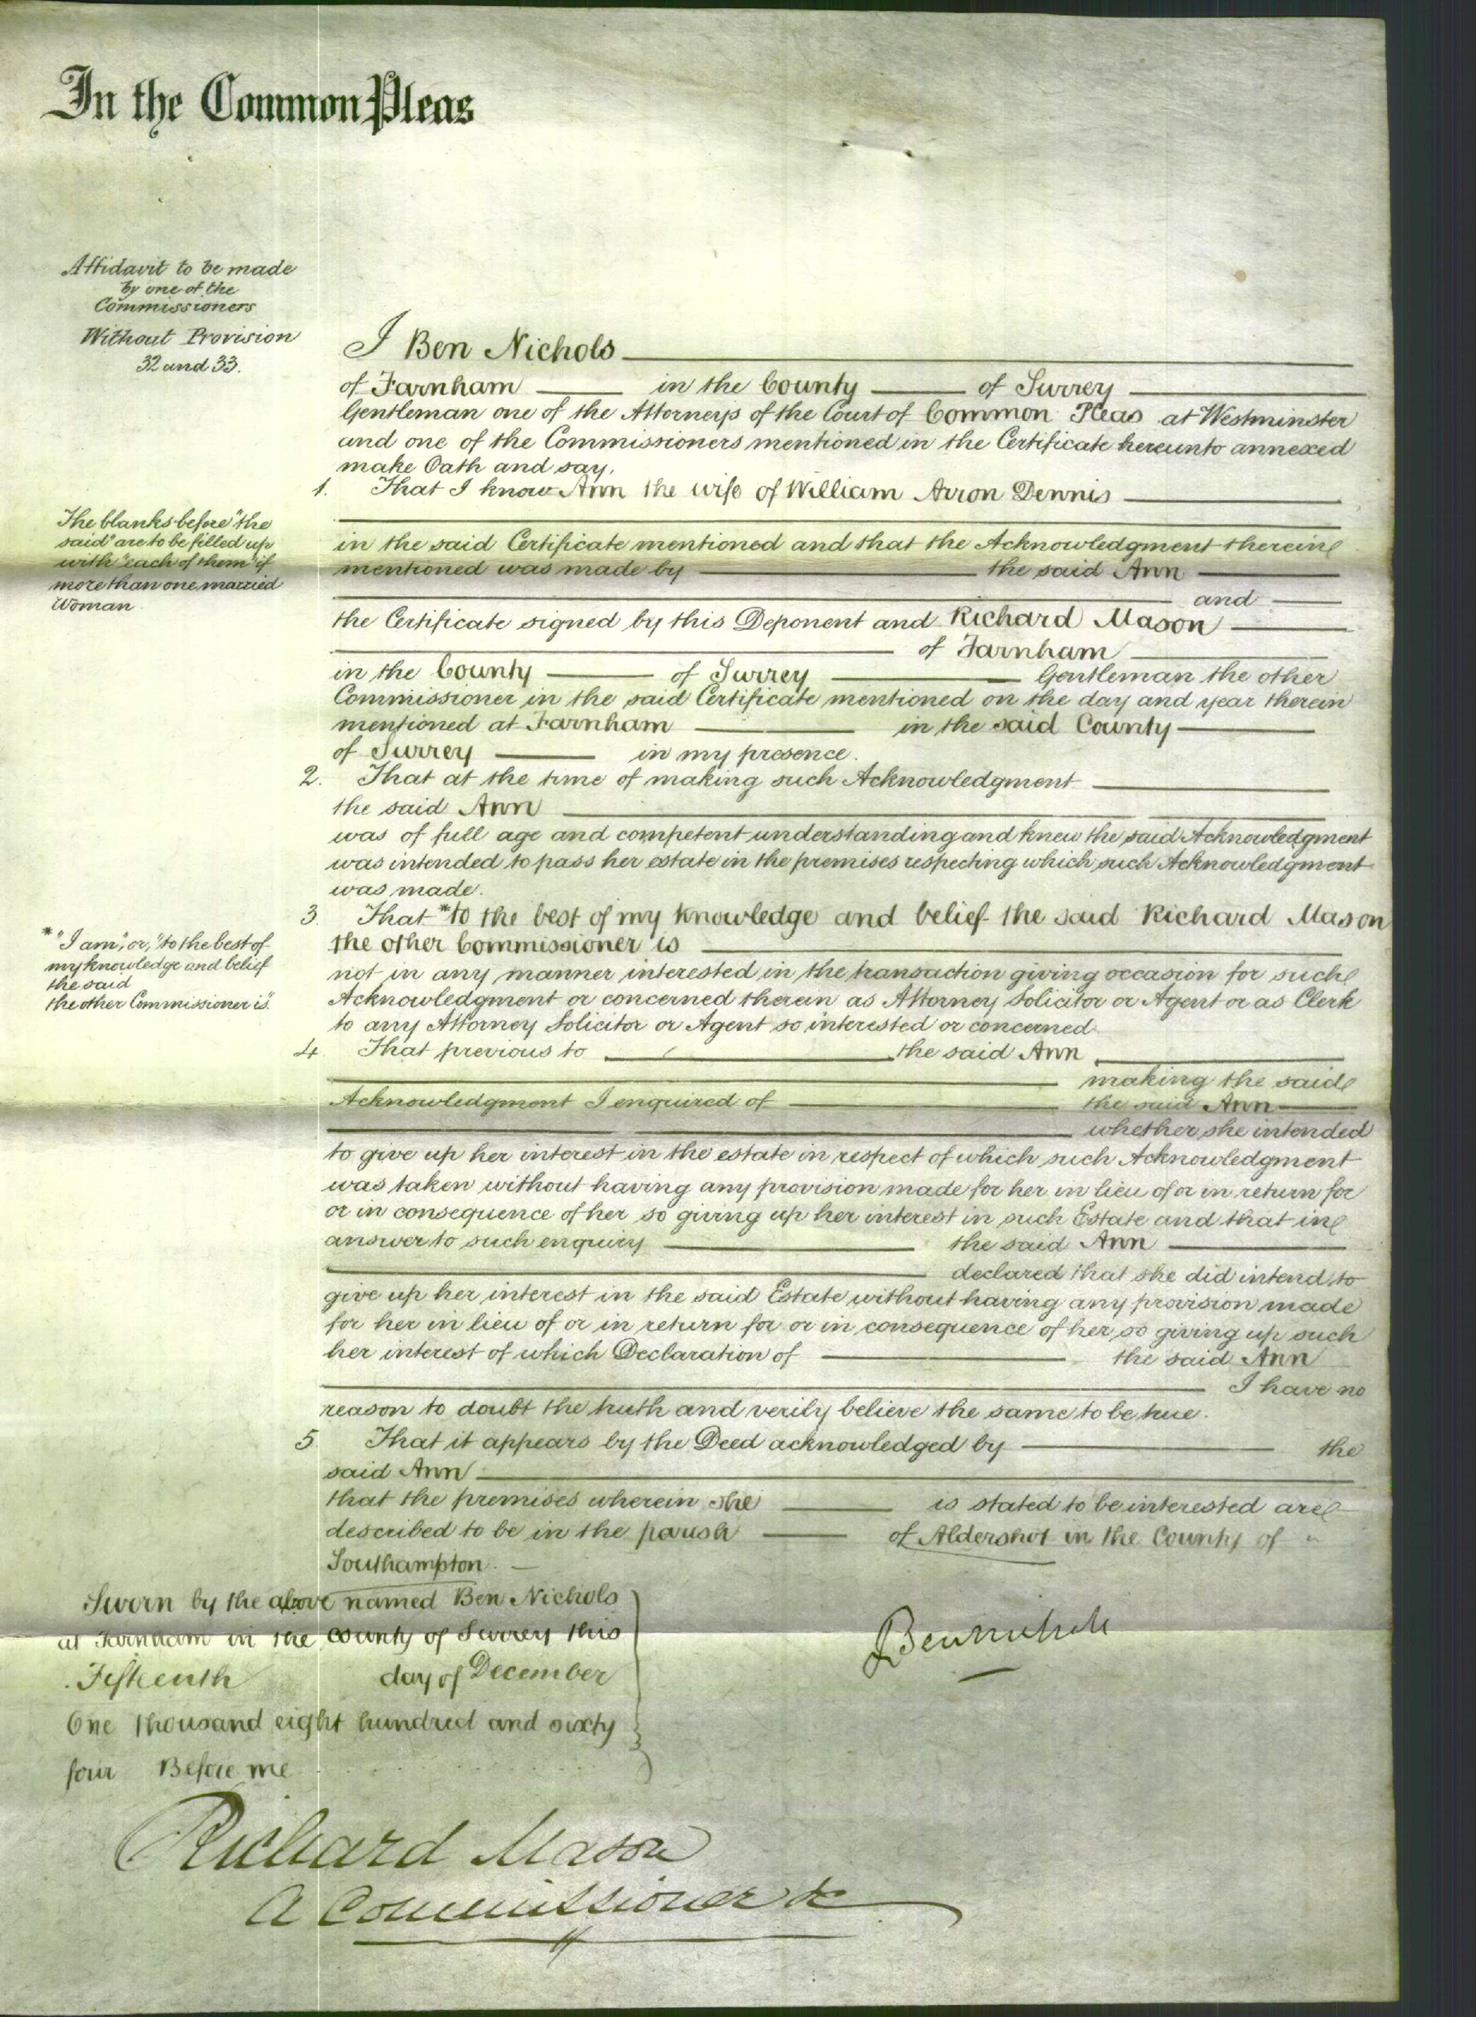 In the Common Pleas
Affidavit to be made
by one of the
Commissioners
Without Provision
32 and 33.
I Ben Nichols
of Farnham in the County of Surrey
Gentleman one of the Attorneys of the Court of Common Pleas at Westminster
and one of the Commissioners mentioned in the Certificate hereunto annexed
make Oath and say,
1. That I know Ann the wife of William Arron Dennis
The blanks before "the
said" are to be filled up
with "each of them" if
more than one married
Woman
in the said Certificate mentioned and that the Acknowledgment therein
mentioned was made by the said Ann
and
the Certificate signed by this Deponent and Richard Mason
of Farnham
in the County of Surrey Gentleman the other
Commissioner in the said Certificate mentioned on the day and year therein
mentioned at Farnham in the said County
of Surrey in my presence.
2. That at the time of making such Acknowledgment
the said Ann
was of full age and competent understanding and knew the said Acknowledgment
was intended to pass her estate in the premises respecting which such Acknowledgment
was made.
3. That * to the best of my knowledge and belief the said Richard Mason
the other Commissioner is
* "I am", or, "to the best of
my knowledge and belief
the said
the other Commissioner is"
not in any manner interested in the transaction giving occasion for such
Acknowledgment or concerned therein as Attorney Solicitor or Agent or as Clerk
to any Attorney Solicitor or Agent so interested or concerned
4. That previous to the said Ann
making the said
Acknowledgment I enquired of the said Ann
whether she intended
to give up her interest in the estate in respect of which such Acknowledgment
was taken without having any provision made for her in lieu of or in return for
or in consequence of her so giving up her interest in such Estate and that in
answer to such enquiry the said Ann
declared that she did intend to
give up her interest in the said Estate without having any provision made
for her in lieu of or in return for or in consequence of her so giving up such
her interest of which Declaration of the said Ann
I have no
reason to doubt the truth and verily believe the same to be true.
5 That it appears by the Deed acknowledged by the
said Ann
that the premises wherein she is stated to be interested are
described to be in the parish of Aldershot in the County of
Southampton
Sworn by the above named Ben Nichols
at Farnham in the county of Surrey this
Fifteenth day of December
One thousand eight hundred and sixty
four Before me
Ben Nichols
Richard Mason
A Commissioner &c